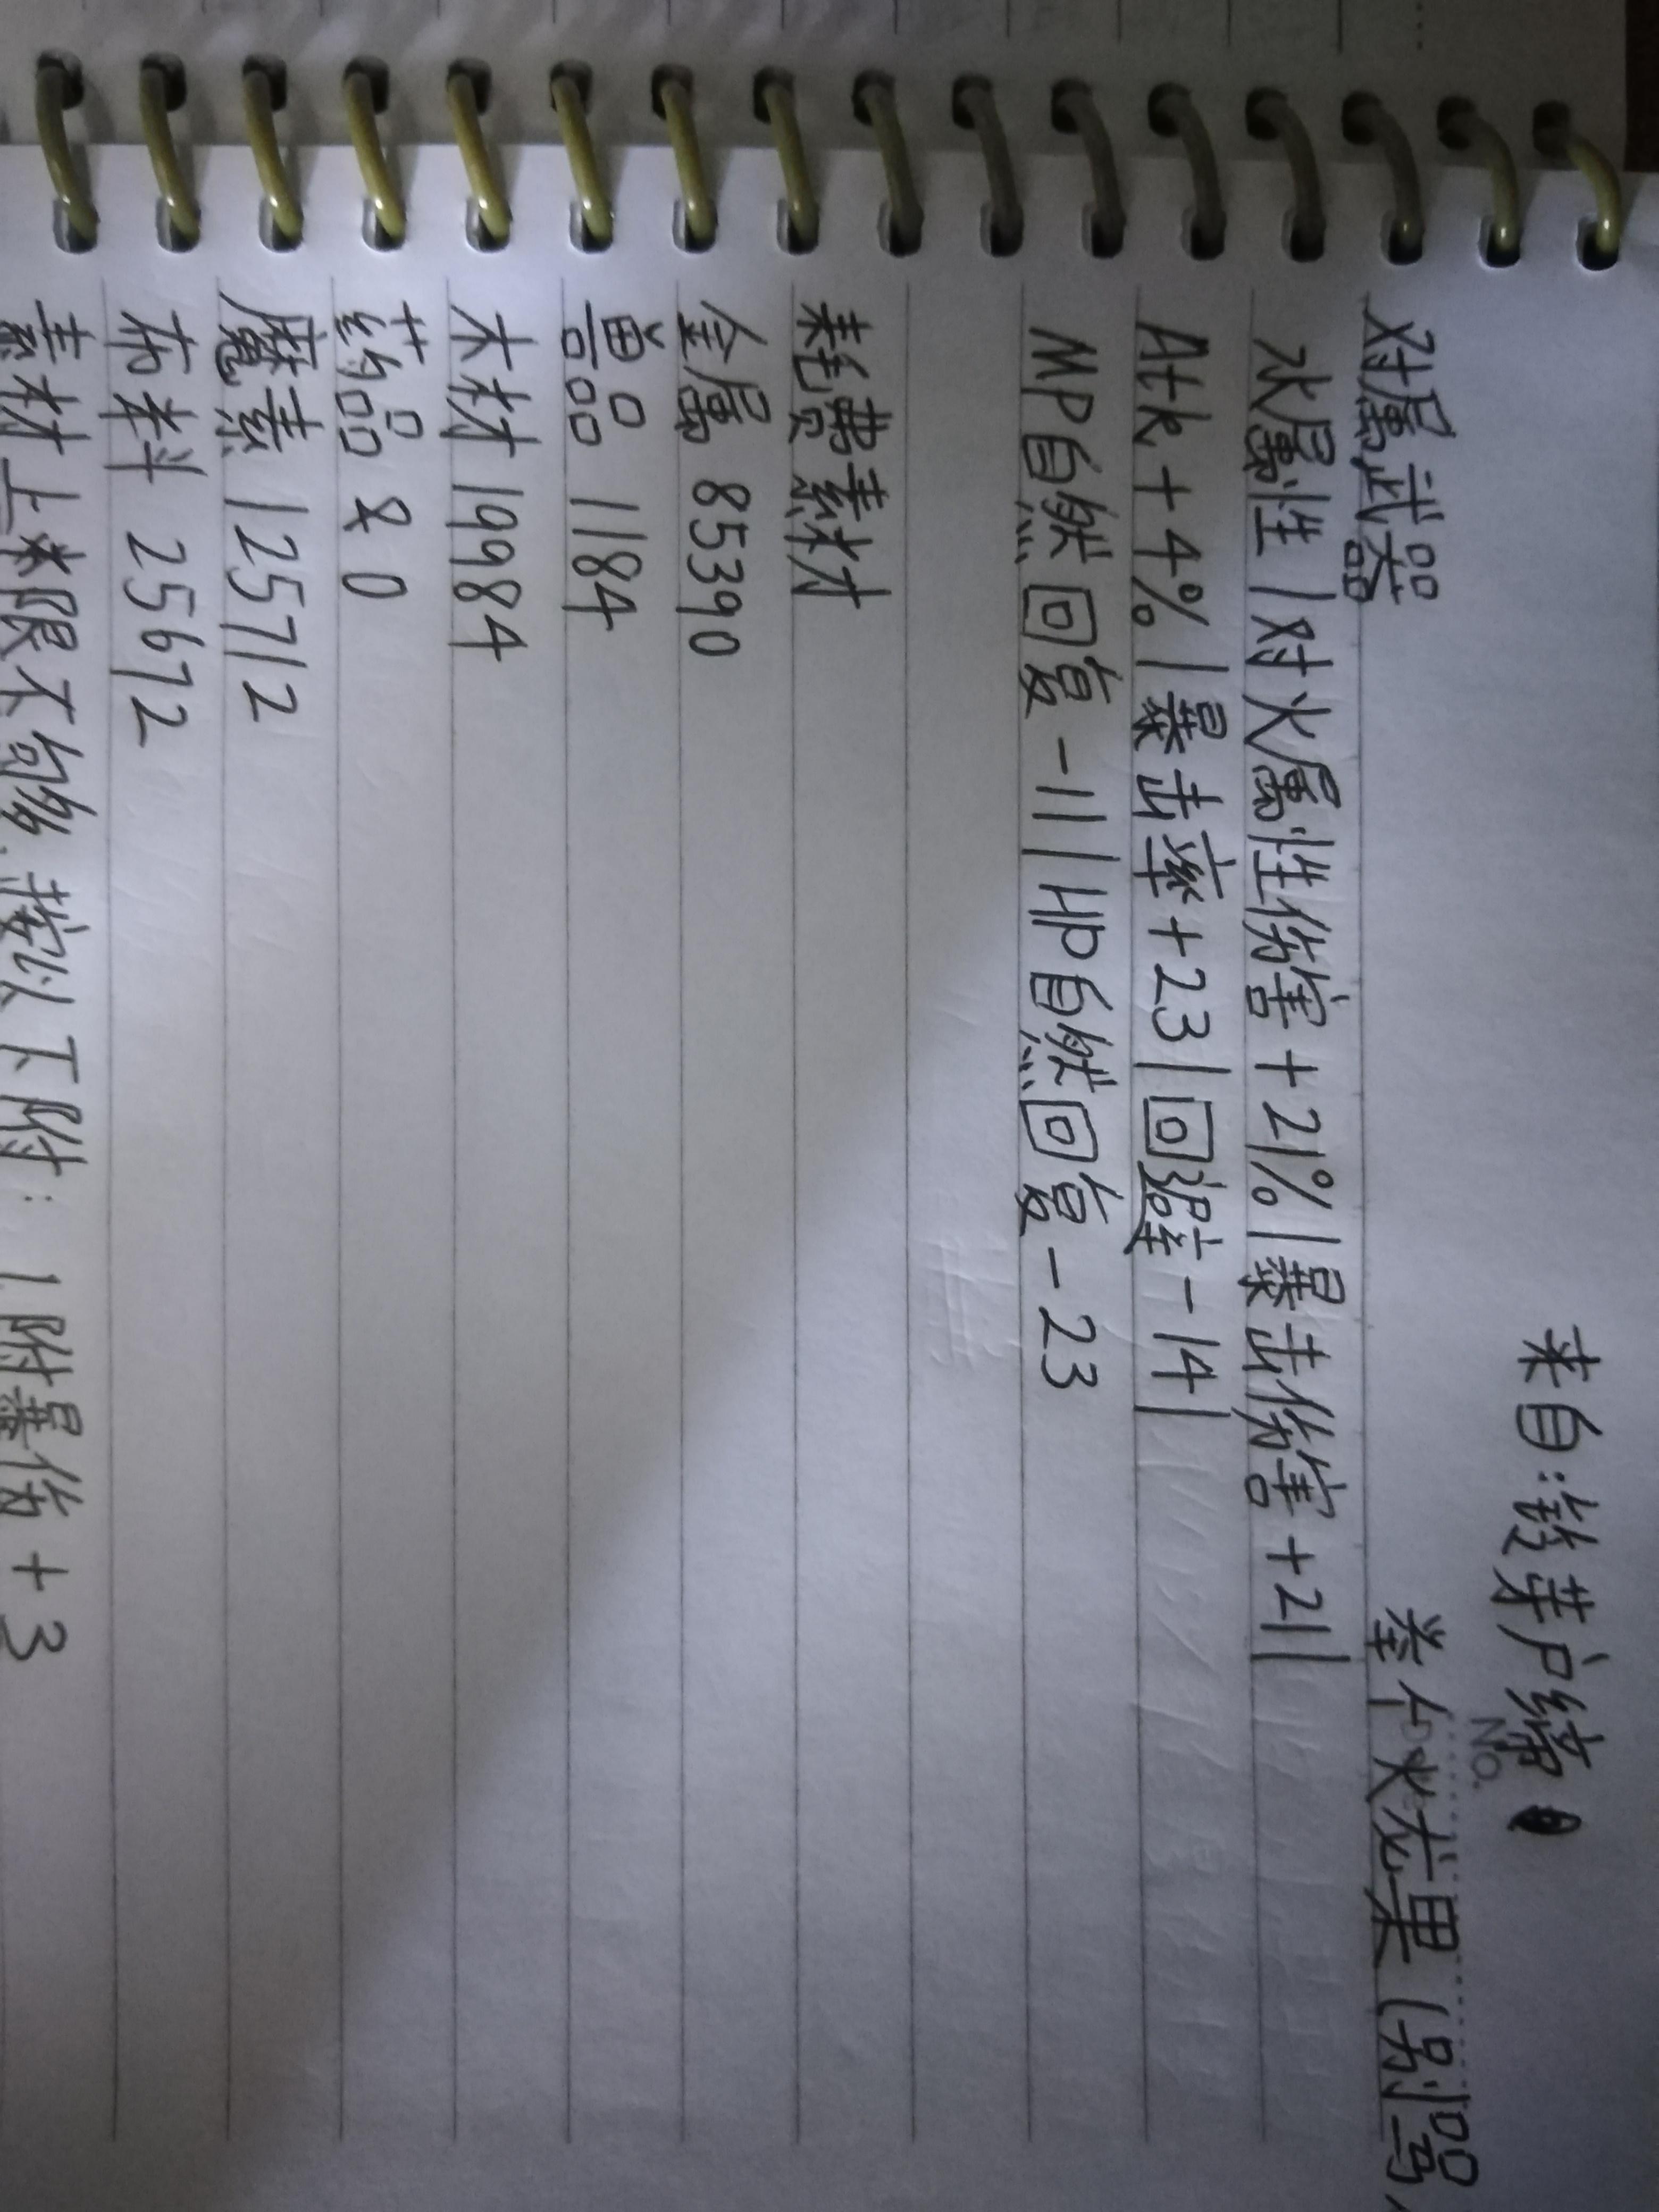 来自:铃芽户缔
NO.
对属武器 举个火龙果(别号
水属性|对火属性伤害+21%|暴击伤害+21|
Atk+4%|暴击率+23|回避-14|
MP自然回复-11|HP自然回复-23
耗费素材
金属 85390
兽品 1184
木材 19984
药品 80
魔素 125712
布料 25672
素材上限不够,按以下附:1.附暴伤+3